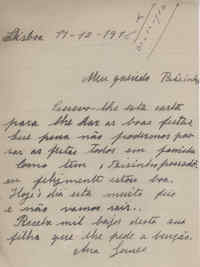 Lisboa 17-12-915
Meu querido Paisinho
Escrevo-lhe esta carta
para lhe dar as boas festas
que pena não podermos pas-
sar as festas todos em familia
Como tem, Paisinho, passado,
eu felizmente estou boa.
Hoje o dia está muito frio
e não vamos sair.
Receba mil beijos desta sua
filha que lhe pede a benção.
Ana